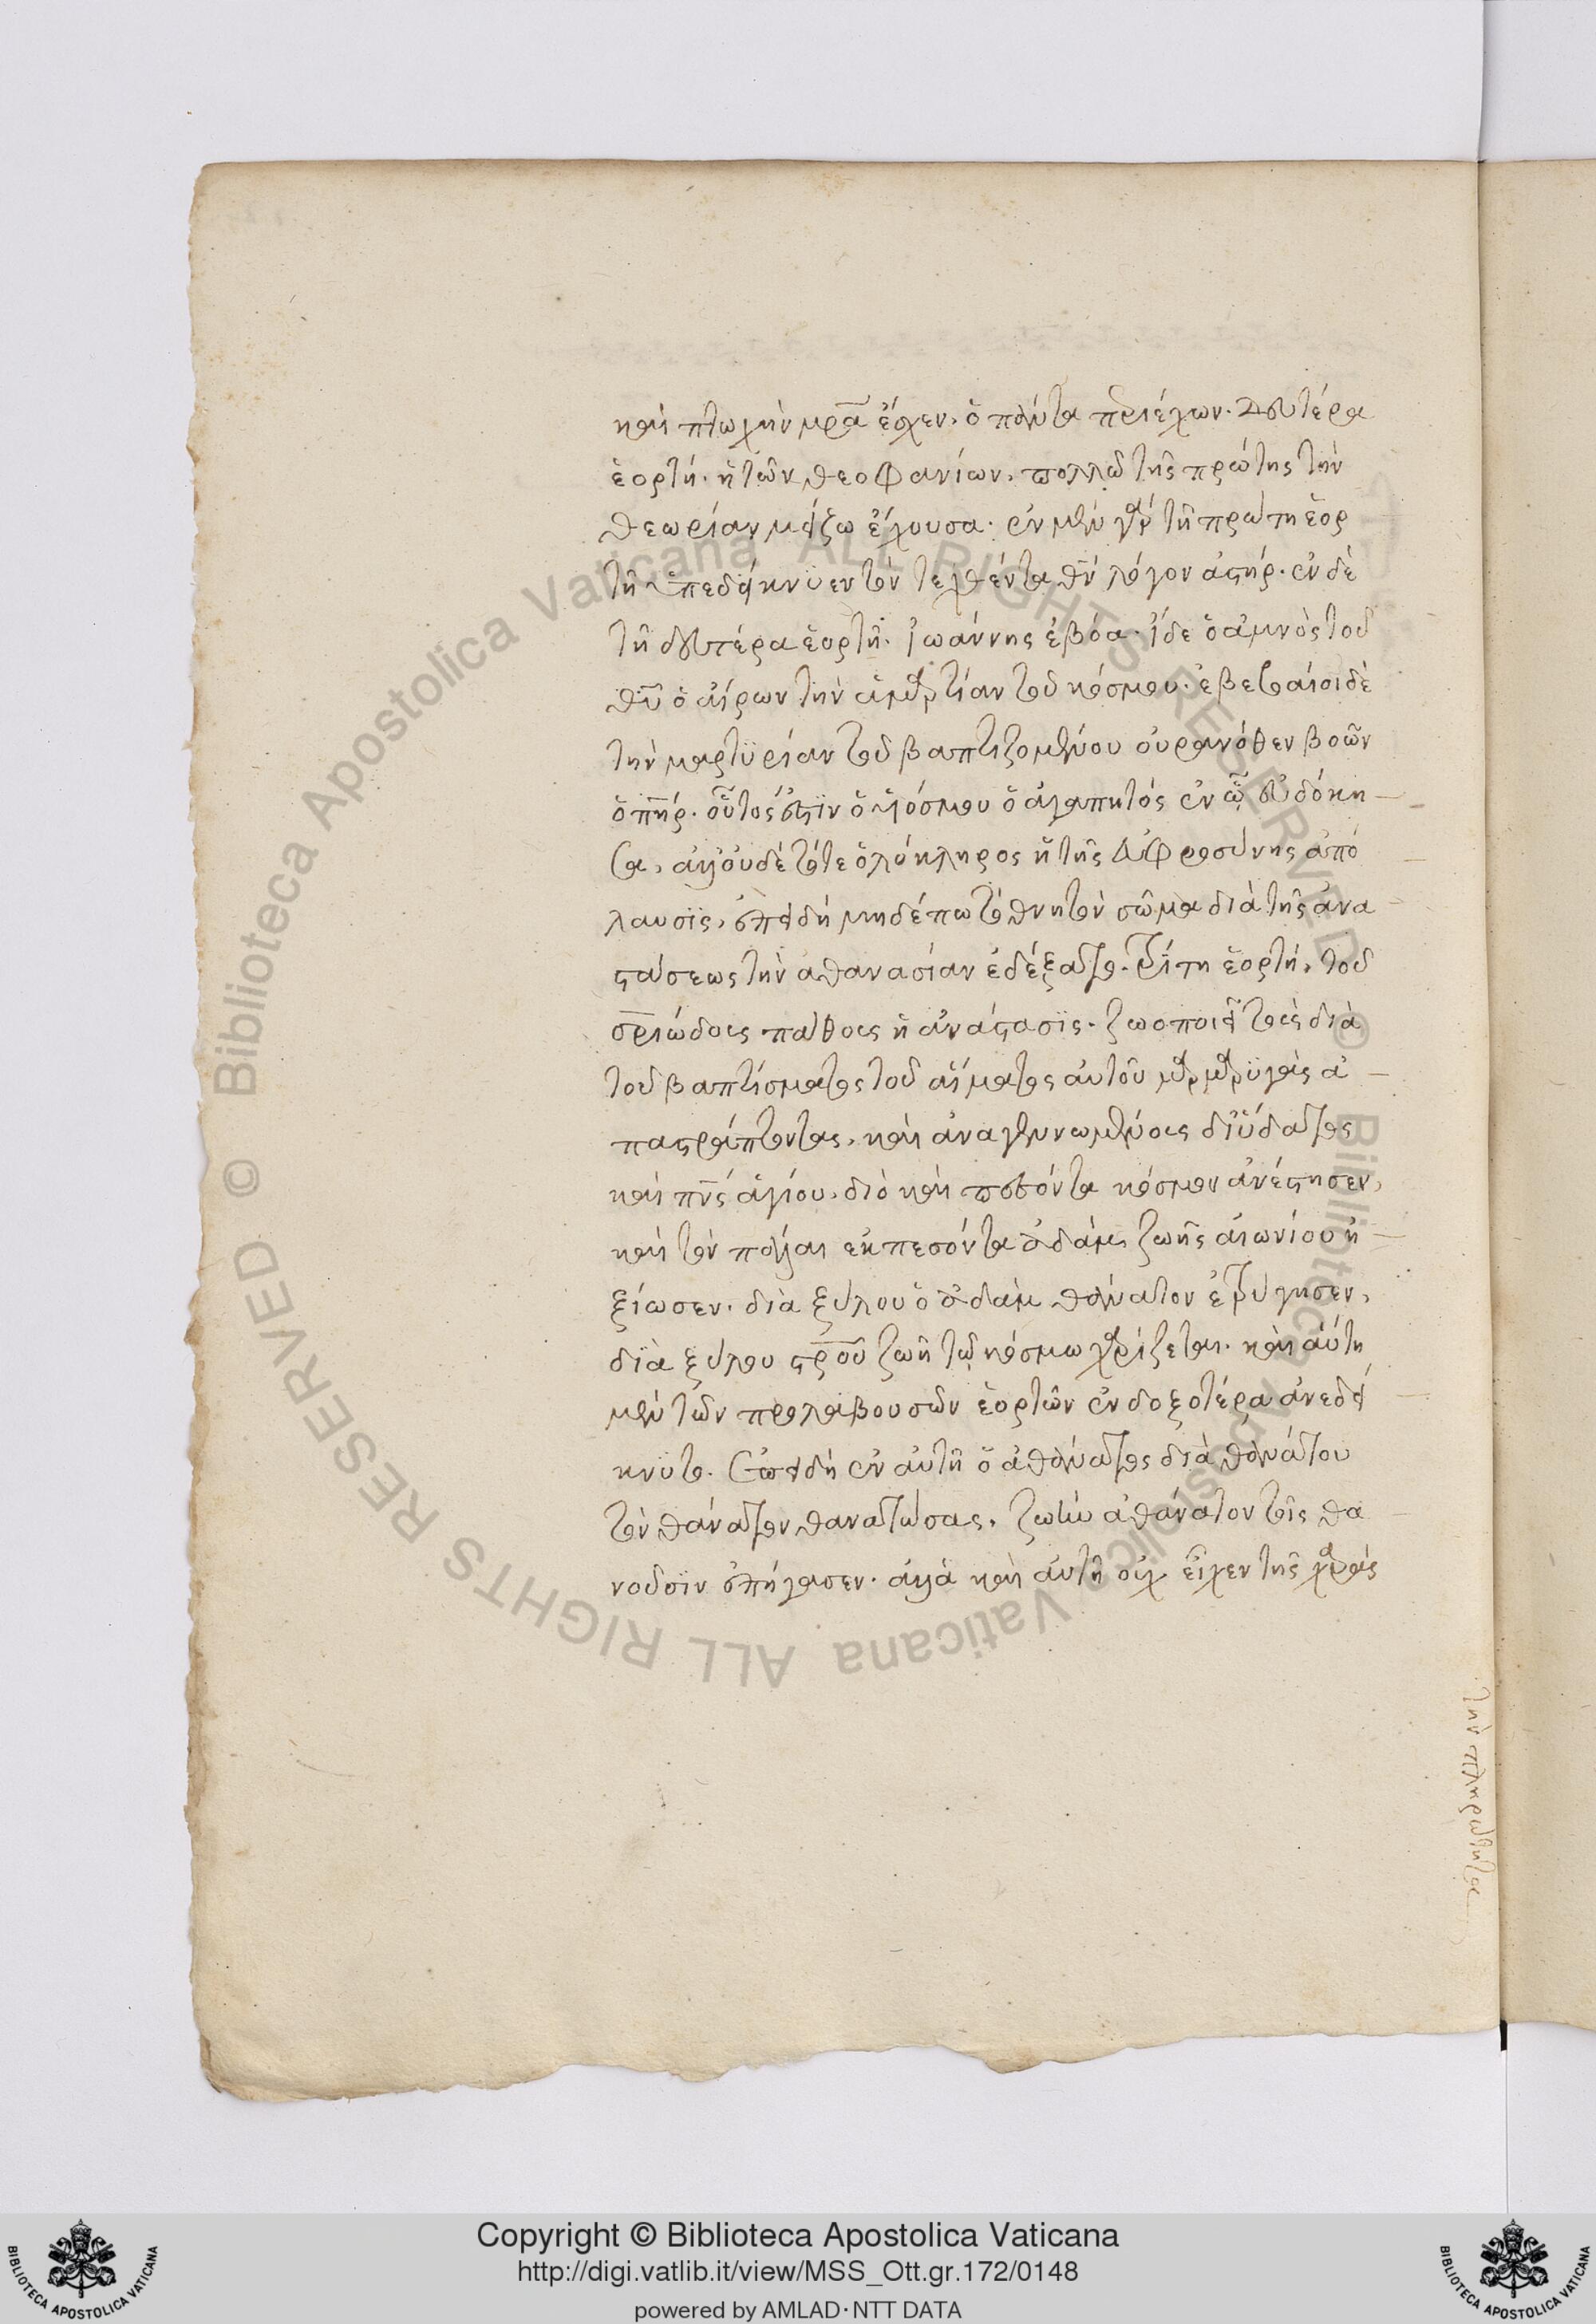 καὶ πτωχὴν μρ̅α ἔσχεν, ὁ πάντα περιέχων. Δευτέρα
ἑορτή. ἡ τῶν θεοφανίων, πολλῶ τῆς πρώτης τὴν
θεωρίαν μείζω ἔχουσα. ἐν μὲν γὰρ τῆ πρώτη ἑορ
τῆ ὑπεδείκνϋεν τὸν τεχθέντα θ̅ν λόγον ἀστήρ. ἐν δὲ
τῆ δευτέρα ἑορτῆ. ἰωάννης ἐβόα. ἴδε ὁ ἀμνὸς τοῦ
θ̅υ ὁ αἴρων τὴν ἁμαρτίαν τοῦ κόσμου. ἐβεβαίοι δὲ
τὴν μαρτϋρίαν τοῦ βαπτιζομένου οὐρανόθεν βοῶν
ὁ π̅η̅ρ. οὗτός ἐστϊν ὁ υἱόσμου ὁ ἀγαπητός ἐν ᾧ εὐδόκη
σα, ἀλλ' οὐδέ τότε ὁλόκληρος ἡ τῆς εὐφροσύνης ἀπό
λαυσϊς, ἐπειδή μηδέπω τὸ θνητὸν σῶμα διὰ τῆς ἀνα
στάσεως τὴν ἀθανασίαν ἐδέξατο. Τρίτη ἑορτή, τοῦ
σ̅ρ̅ιώδους πάθους ἡ ἀνάστασϊς. ζωοποιεῖ τοὺς διὰ
τοῦ βαπτίσματος τοῦ αἵματος αὐτοῦ μαρμαρϋγὰς ἀ
παστράπτοντας, καὶ ἀναγεννωμένους δι' ὕδατος
καὶ π̅ν̅ς ἁγίου, διὸ καὶ πεσόντα κόσμον ἀνέστησεν,
καὶ τὸν πάλαι ἐκπεσόντα ἀδὰμ, ζωῆς αἰωνίου ἠ
ξίωσεν. διὰ ξύλου ὁ ἀδὰμ θάνατον ἐτρύγησεν,
δϊὰ ξύλου στ̅ρ̅οῦ ζωὴ τῶ κόσμω χαρίζεται. καὶ αὕτη
μὲν τῶν προλαβουσῶν ἑορτῶν ἐνδοξοτέρα ἀνεδεί
κνϋτο. Ἐπειδὴ ἐν αὐτῆ ὁ ἀθάνατος διὰ θανάτου
τὸν θάνατον θανατώσας, ζωὴν ἀθάνατον τοῖς θα
νοῦσϊν ἐπήγασεν. ἀλλὰ καὶ αὐτὴ οὐχ εἶχεν τῆς χαρᾶς
τὴν πληρωτητα